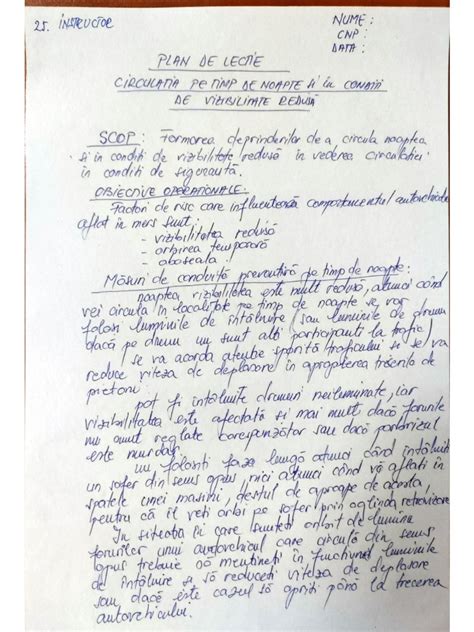 25. INSTRUCTOR
NUME :
CNP :
DATA :
PLAN DE LECTIE
CIRCULATIA PE TIMP DE NOAPTE SI in CONDITII
DE VIZIBILITATE REDUSĂ
SCOP : Formarea deprinderilor de a circula noaptea
si in conditii de vizibilitate redusă in vederea circulatiei
in conditii de siguranta.
OBIECTIVE OPERATIONALE:
Factori de risc care influentează comportamentul autovehiculului
aflat in mers sunt:
- vizibilitatea redusă
- orbirea temporară
- oboseala.
Măsuri de conduită preventivă pe timp de noapte:
noaptea, vizibilitatea este mult redusă, atunci când
vei circula in localitate pe timp de noapte se vor
folosi luminile de întâlnire (sau luminile de drum
dacă pe drum nu sunt alti participanti la trafic)
se va acorda atentie sporită traficului si se va
reduce viteza de deplasare in apropierea trecerilor de
pietoni.
pot fi intâlnite drumuri neiluminate, iar
vizibilitatea este afectată si mai mult dacă farurile
nu sunt reglate corespunzător sau dacă parbrizul
este murdar.
nu folositi faza lungă atunci când intâlniti
un sofer din sens opus, nici atunci când vă aflati in
spatele unei masini, destul de aproape de acesta,
pentru că il veti orbi pe sofer prin oglinda retrovizoare
In situatia in care sunteti orbit de lumina
farurilor unui autovehicul care circulă din sens
opus trebuie să mentineti in functiune luminile
de întâlnire si să reduceti viteza de deplasare
sau dacă este cazul să opriti până la trecerea
autovehiculului.